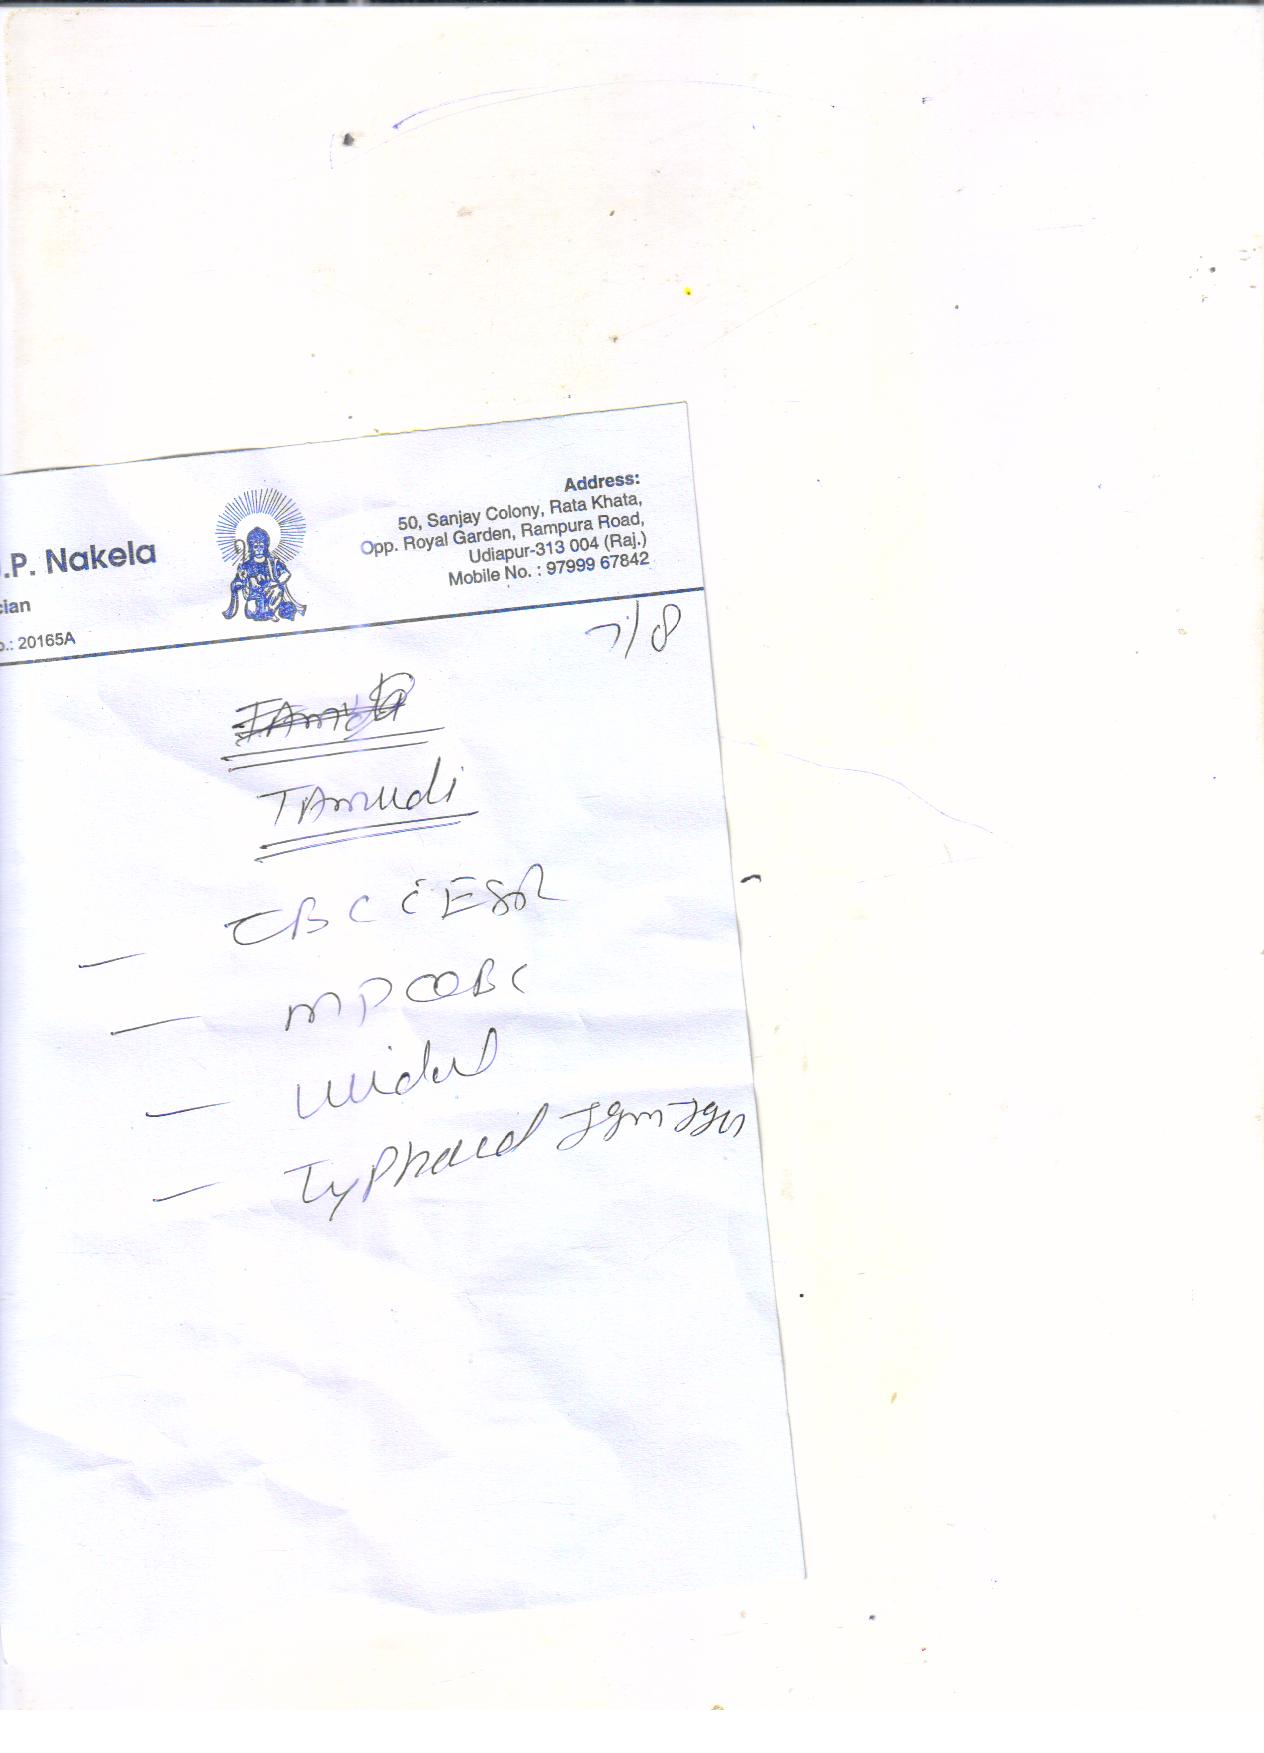 .P. Nakela
cian
o.: 20165A
Address:
50, Sanjay Colony, Rata Khata,
Opp. Royal Garden, Rampura Road,
Udiapur-313 004 (Raj.)
Mobile No. : 97999 67842
7/8
TAmudi
— CBC c̄ ESR
— MP QBC
— widal
— Typhoid IgM IgG